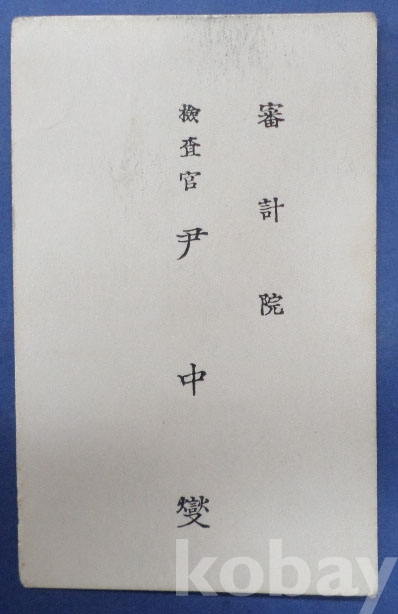 審計院
檢査官 尹中燮
kobay